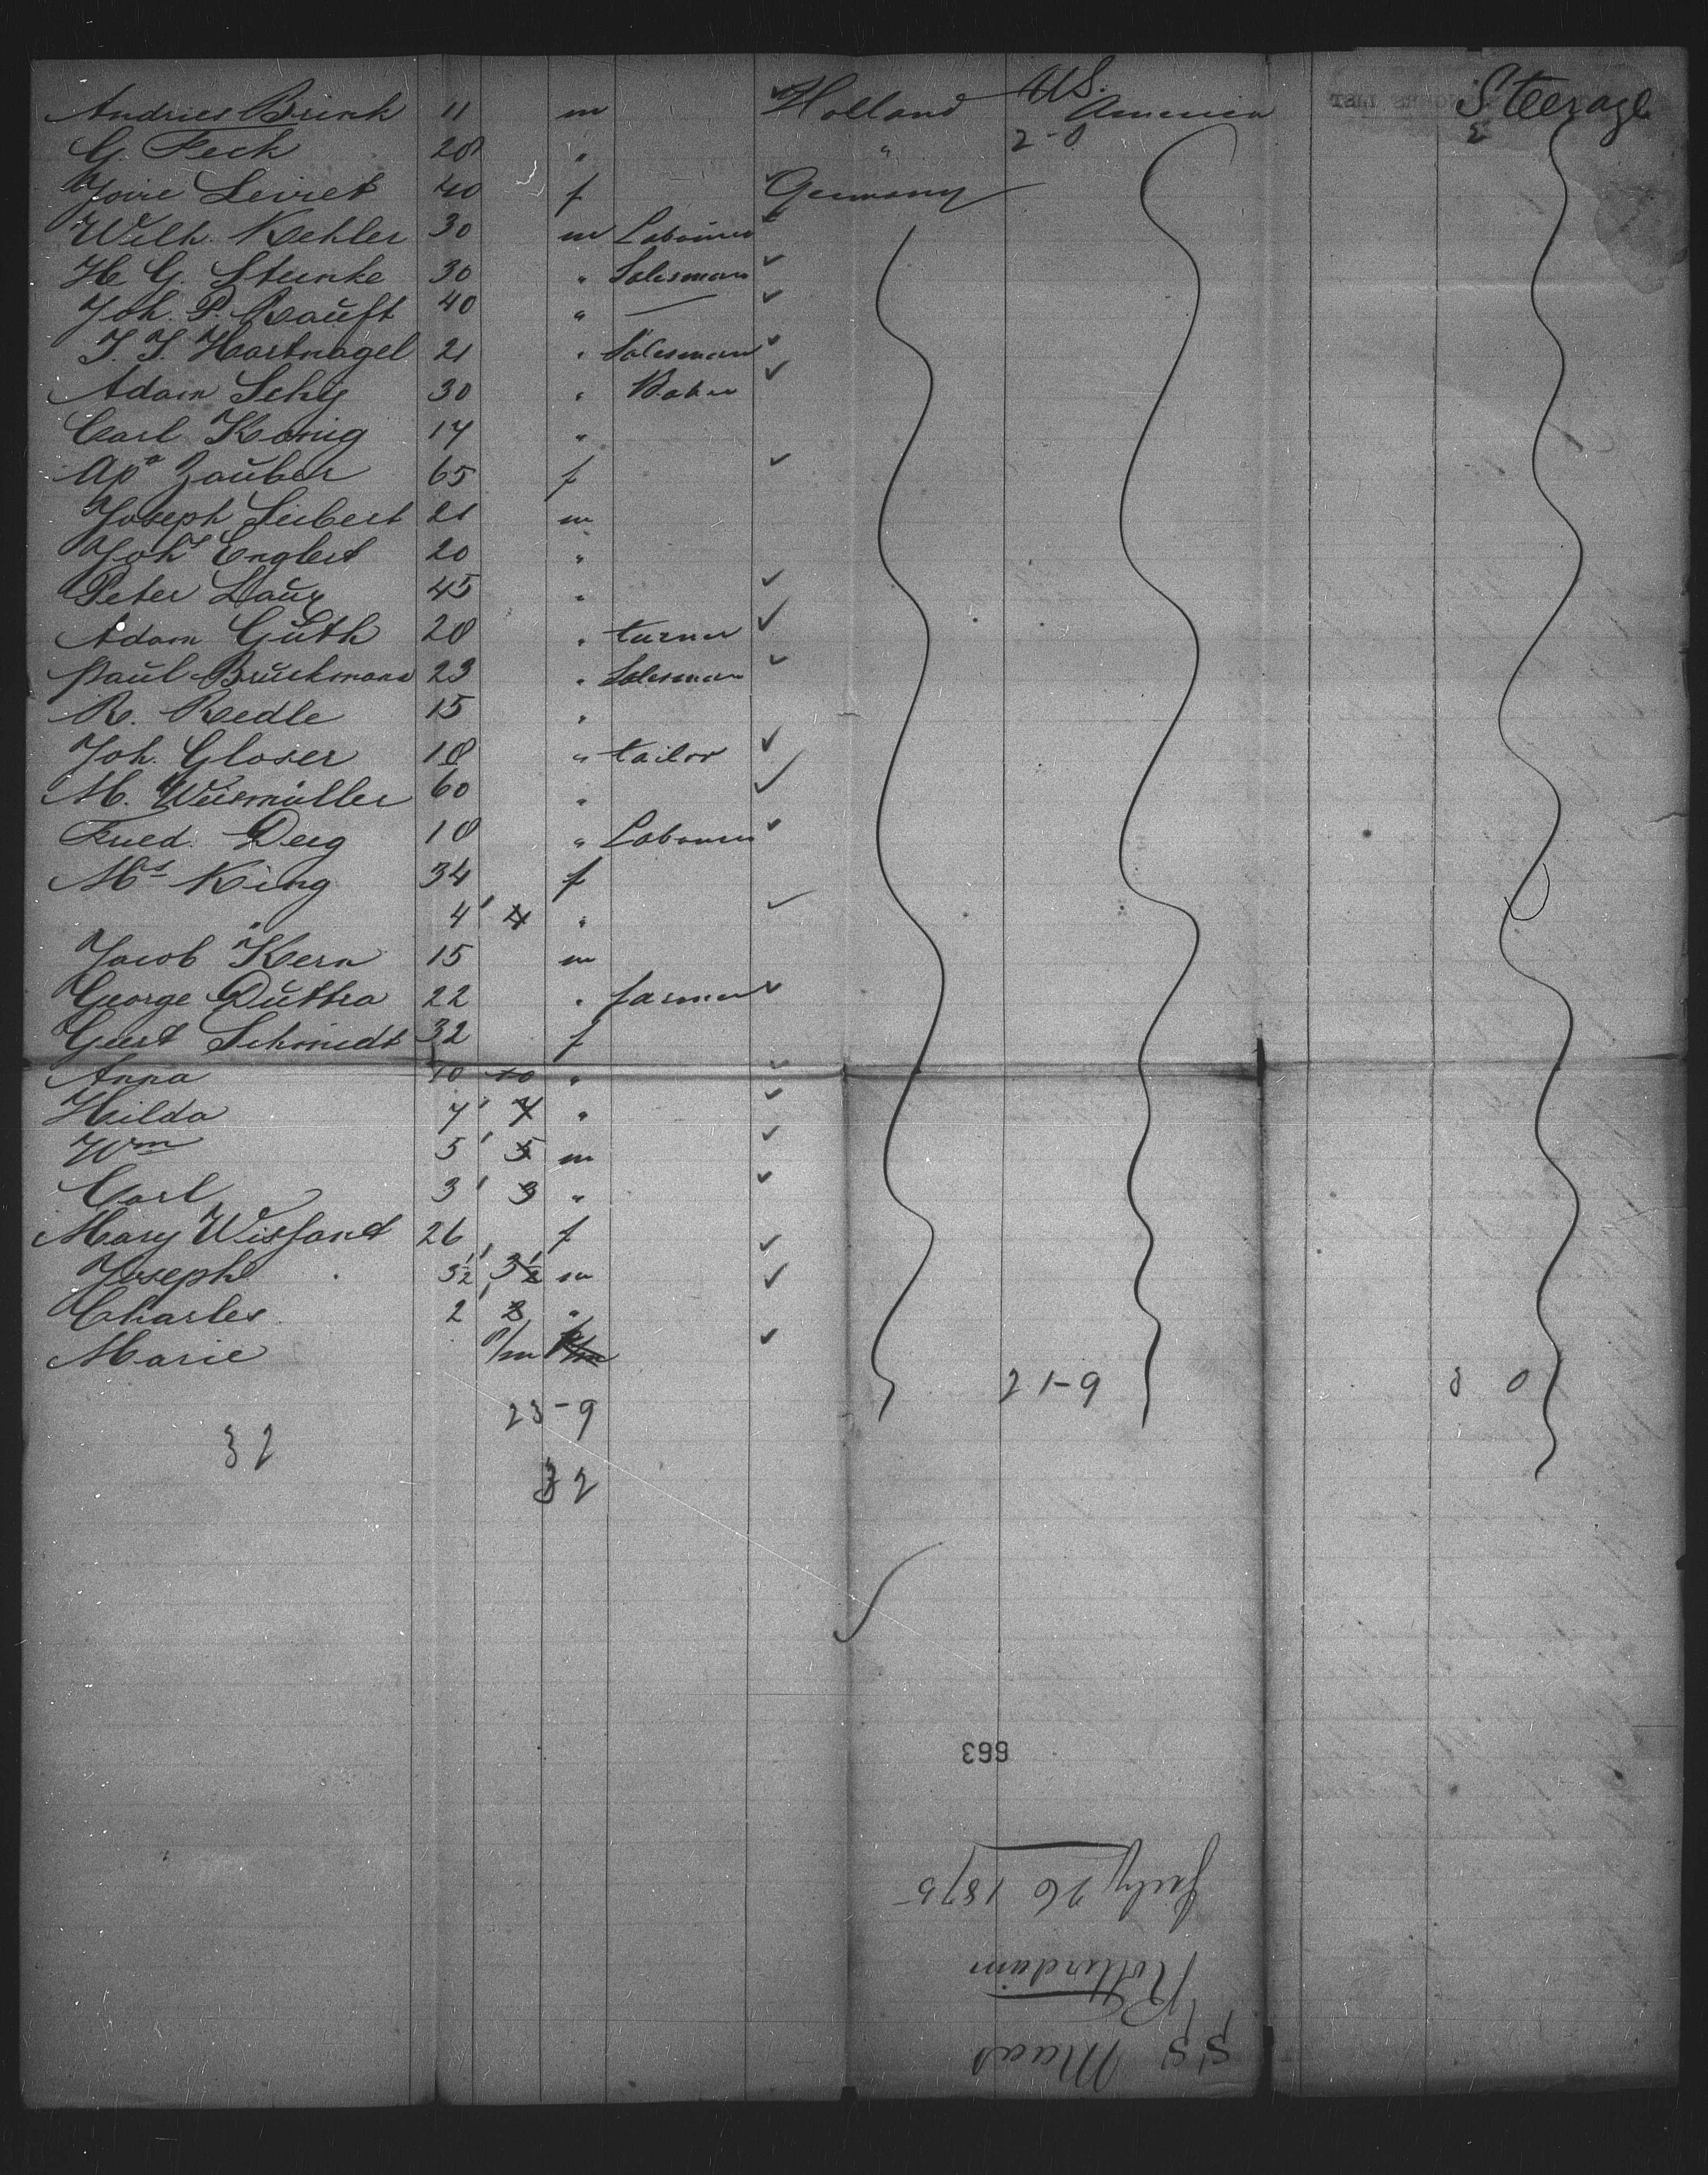 Andries Brink 11 m Holland U.S. America Steerage
G. Feck 28 " " 2-0 2
Joire Leiret 40 f Germany
Wilh. Kehler 30 m Labourer
H. G. Steinke 30 " Salesman
Joh. P. Rauft 40 " —
J. J. Hartnagel 21 " Salesman
Adam Schy 30 " Baker
Carl Konig 17 "
Apª Zauber 65 f
Joseph Seibert 21 m
Johs Englert 20 "
Peter Laux 45 "
Adam Guth 28 " turner
Paul Bruckmann 23 " Salesman
R. Redle 15 "
Joh. Gloser 18 " tailor
M. Weismüller 60 "
Fried. Deig 18 " Labourer
Ms King 34 f
" 4 4 "
Jacob Kern 15 m
George Duttra 22 " farmer
Geert Schmidt 32 f
Anna 10 10 "
Hilda 7 7 "
Wm 5 5 m
Carl 3 3 "
Mary Wisfant 26 f
Joseph 3½ 3½ m
Charles 2 2 "
Marie 9/m
21-9 3 0
23-9
32
32
663
July 26 1875
Rotterdam
SS Maas